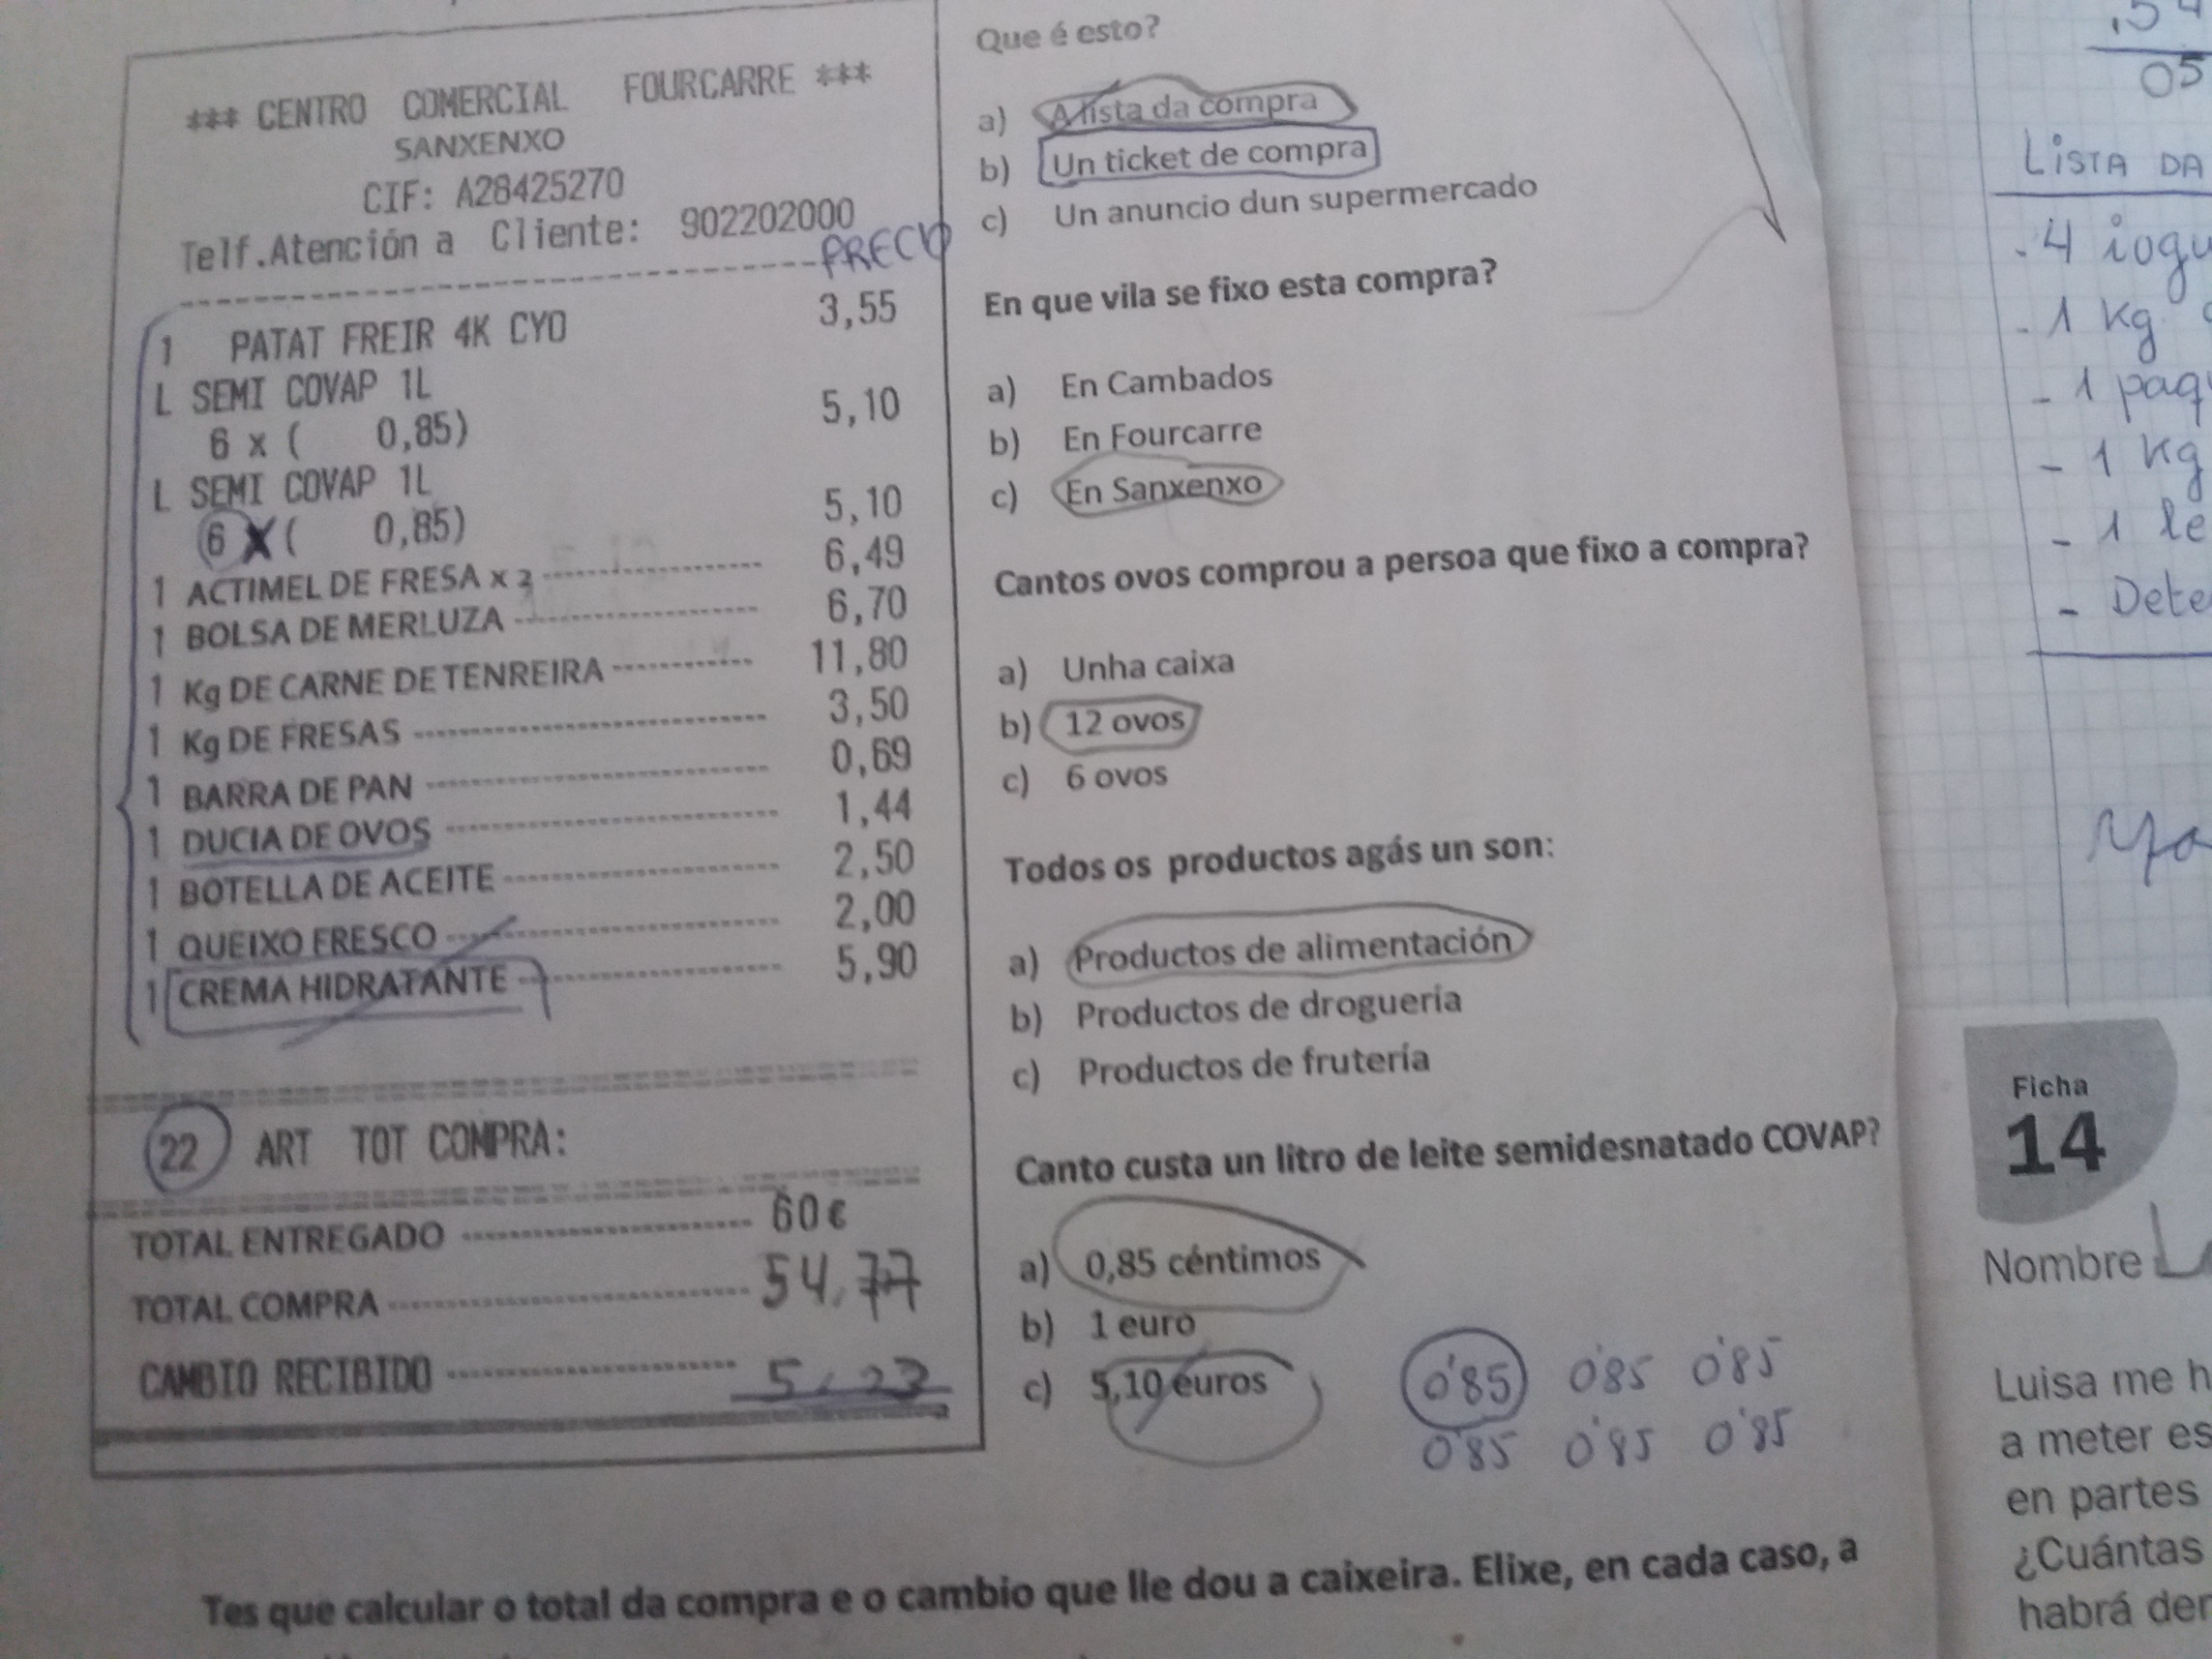 *** CENTRO COMERCIAL FOURCARRE ***
SANXENXO
CIF: A28425270
Telf.Atención a Cliente: 902202000
PRECIO
1 PATAT FREIR 4K CYO 3,55
L SEMI COVAP 1L
6 x ( 0,85) 5,10
L SEMI COVAP 1L
6 X ( 0,85) 5,10
1 ACTIMEL DE FRESA x 2 6,49
1 BOLSA DE MERLUZA 6,70
1 Kg DE CARNE DE TENREIRA 11,80
1 Kg DE FRESAS 3,50
1 BARRA DE PAN 0,69
1 DUCIA DE OVOS 1,44
1 BOTELLA DE ACEITE 2,50
1 QUEIXO FRESCO 2,00
1 CREMA HIDRATANTE 5,90
22 ART TOT COMPRA:
TOTAL ENTREGADO 60€
TOTAL COMPRA 54,77
CAMBIO RECIBIDO 5,23
Que é esto?
a) A lista da compra
b) Un ticket de compra
c) Un anuncio dun supermercado
En que vila se fixo esta compra?
a) En Cambados
b) En Fourcarre
c) En Sanxenxo
Cantos ovos comprou a persoa que fixo a compra?
a) Unha caixa
b) 12 ovos
c) 6 ovos
Todos os productos agás un son:
a) Productos de alimentación
b) Productos de droguería
c) Productos de frutería
Canto custa un litro de leite semidesnatado COVAP?
a) 0,85 céntimos
b) 1 euro
c) 5,10 euros
0'85 0'85 0'85
0'85 0'85 0'85
Tes que calcular o total da compra e o cambio que lle dou a caixeira. Elixe, en cada caso, a
05
LISTA DA
- 4 iogu
- 1 Kg
- 1 paq
- 1 Kg
- 1 le
- Dete
Ficha
14
Nombre
Luisa me h
a meter es
en partes
¿Cuántas
habrá der